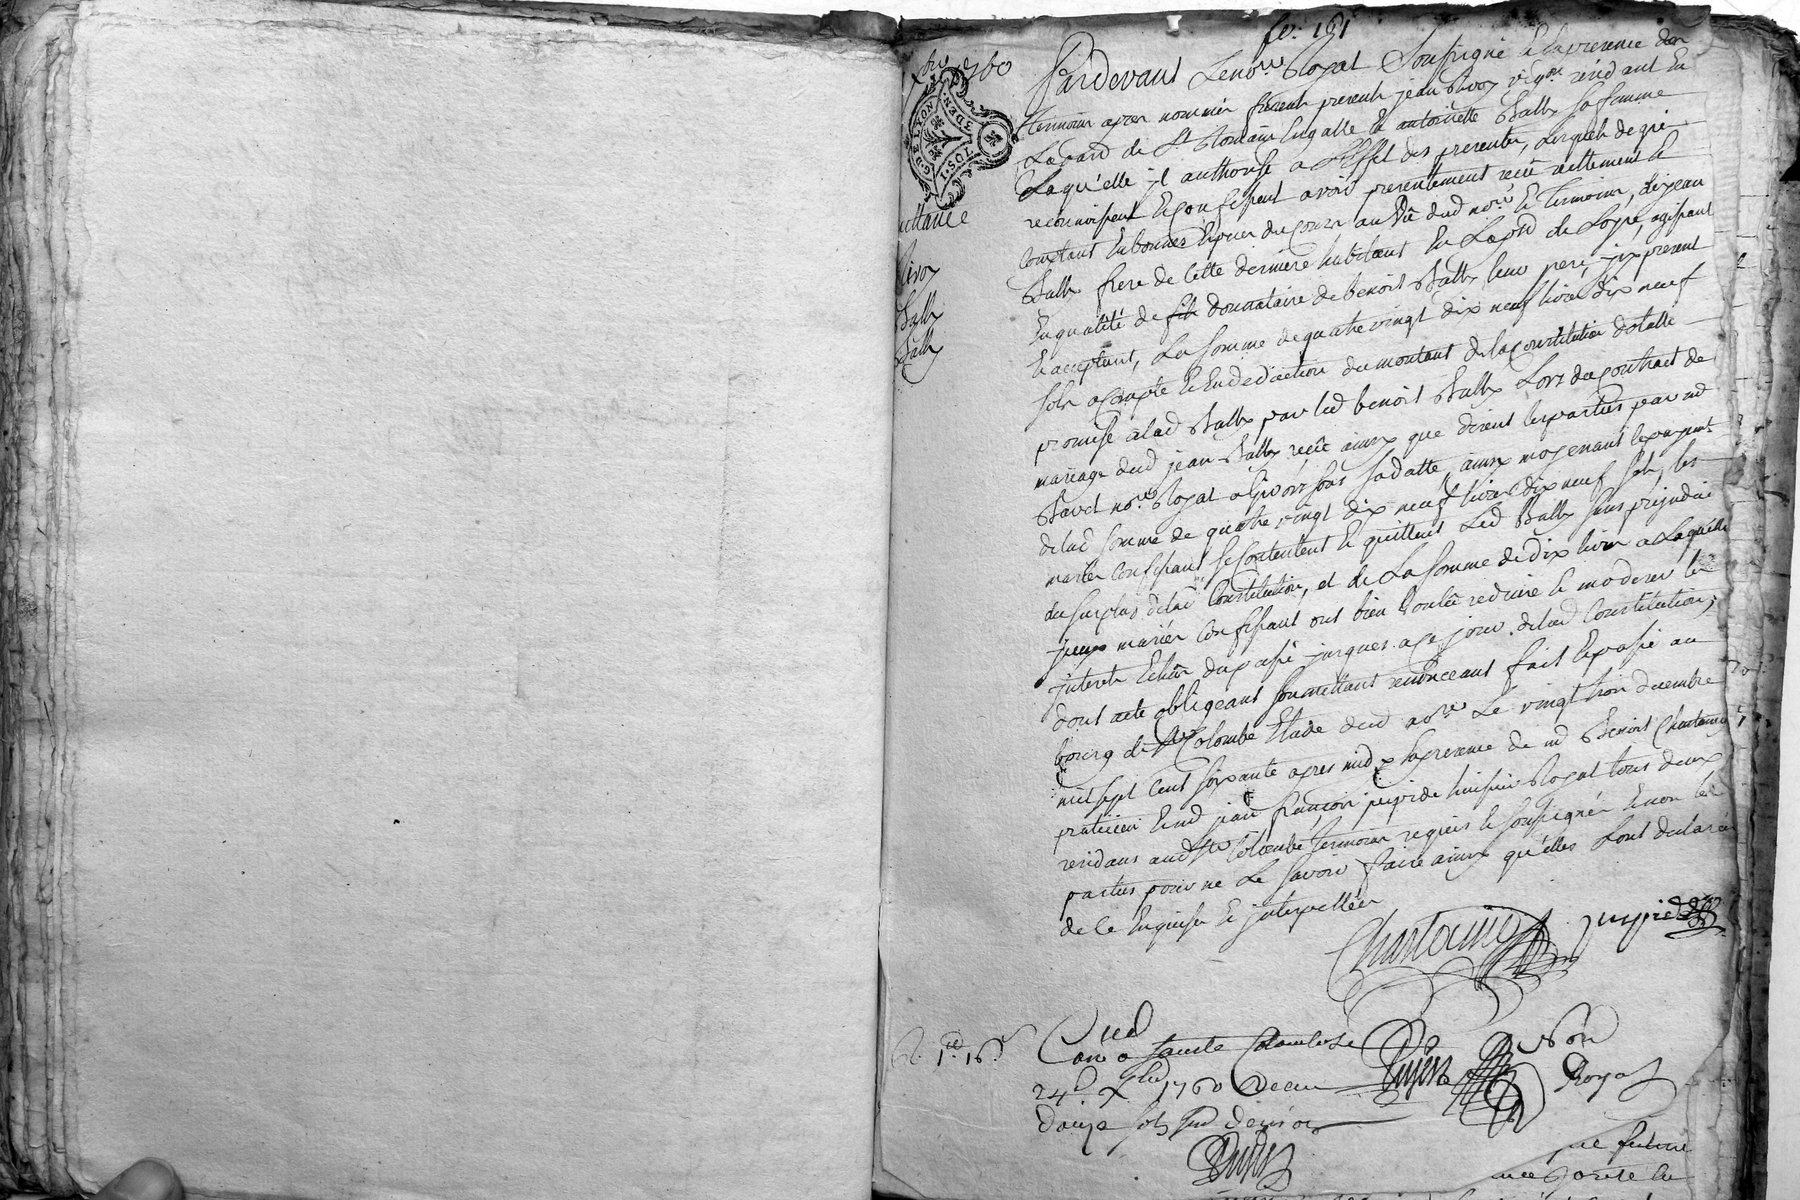 fo. 181
xbre 1760
G. DE LYON
3. DEN.
1. SOL
Pardevant Le nore Royal Soussigné & En presence des
temoins apres nommés furent presents jean Rivoy vigon résidant En
La pard de St Romain En galle & antoinette Bally sa femme
Laqu'elle jl authorise a L'Effet des presentes, Lesquels de gré
reconnoissent & confessent avoir presentement recû réellement &
comptant En bonnes Especes du cours au Vû dud nore & Temoins, de jean
Bally frere de Cette derniere habitant En La pard de Loyre, agissant
En qualité de fils donnataire de benoit Bally leur pere, jcy présent
& acceptant, La somme de quatre vingt dix neuf livres dix neuf
sols a compte & En deduction du montant de la constitution dotalle
promise a lad Bally par led benoit Bally Lors du contract de
mariage dud jean Bally recû ainsy que dirent les parties par md
Bavet nore Royal a Givors sous sa datte, ainsy moyenant le payemt
de lad somme de quatre vingt dix neuf livres dix neuf sols, les
mariés Confessant se Contentent & quittent Led Bally sans prejudice
du surplus de lad Constitution, et de La somme de dix livres a Laquelle
mariés Confessant ont bien Voulû reduire & moderer les
jnterets Echûs du passé jusques a ce jour de lad Constitution;
dont acte obligeant soumettant renonceant fait & passé au
bourg de Ste Colombe Etude dud nore Le vingt trois decembre
mil sept cent soixante apres midy En presence de md Benoit Chantaing
praticien & md jean françois jurpide huissier Royal tous deux
residans aud Ste Colombe temoins requis & soussignés & non les
parties pour ne Le savoir faire ainsy qu'elles L'ont declaré
de ce Enquises & jnterpellées
uittance
Rivoy
Bally
Bally
Chantaing
Con a Sainte Colombe Le
24e xbre 1760 Recu
Douze sols six deniers
nore
Royal
ne future